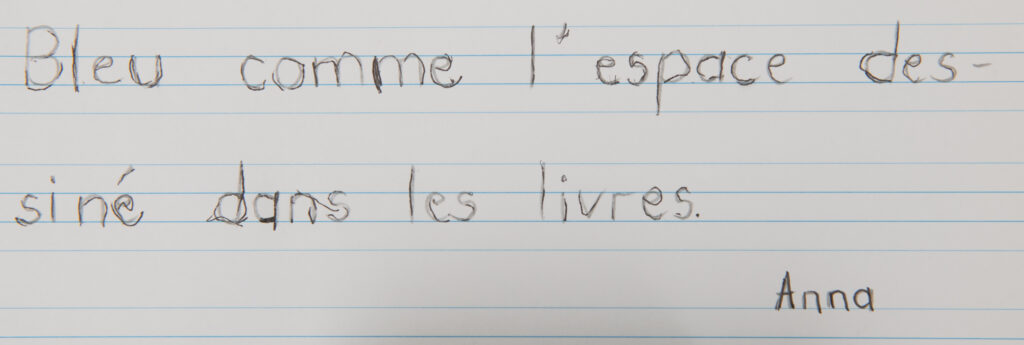 Bleu comme l'espace des-
siné dans les livres.
Anna